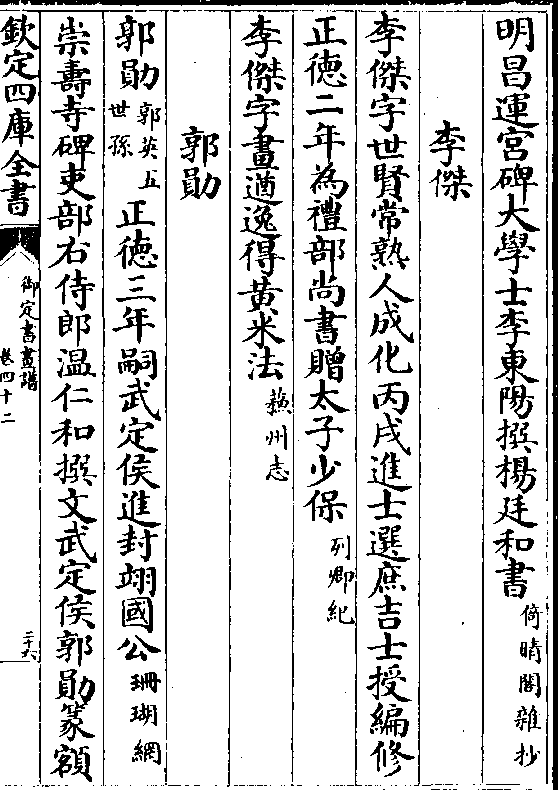 明昌運宮碑大學士李東陽撰楊廷和書倚晴閣雜抄
李傑
李傑字世賢常熟人成化丙戌進士選庶吉士授編修
正德二年為禮部尚書贈太子少保列卿紀
李傑字畫遒逸得黃米法蘇州志
郭勛
郭勛郭英五世孫正德三年嗣武定侯進封翊國公珊瑚網
崇壽寺碑吏部右侍郎温仁和撰文武定侯郭勛篆額
欽定四庫全書
御定書畫譜
卷四十二
三十六